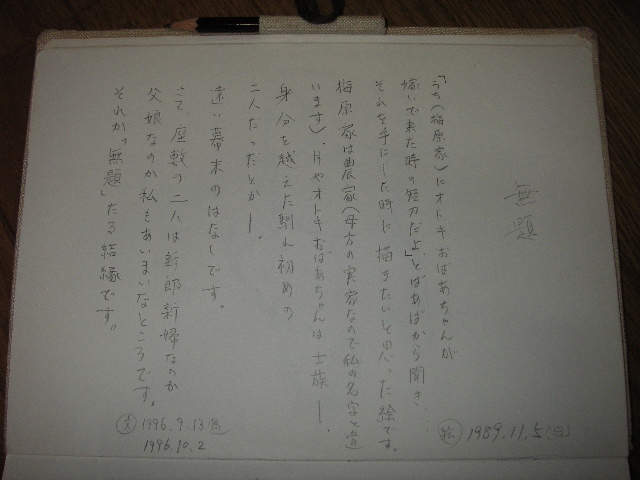 無題
「うち(梅原家)にオトキおばあちゃんが
嫁いで来た時の短刀だよ」とばあばから聞き、
それを手にした時に描きたいと思った絵です。
梅原家は農家(母方の実家なので私の名字と違
います)。片やオトキおばあちゃんは士族ー。
身分を越えた馴れ初めの
二人だったとかー。
遠い幕末のはなしです。
さて、座敷の二人は新郎新婦なのか
父娘なのか私もあいまいなところです。
それが「無題」たる結縁です。
絵 1989.11.5(日)
文 1996.9.13
1996.10.2